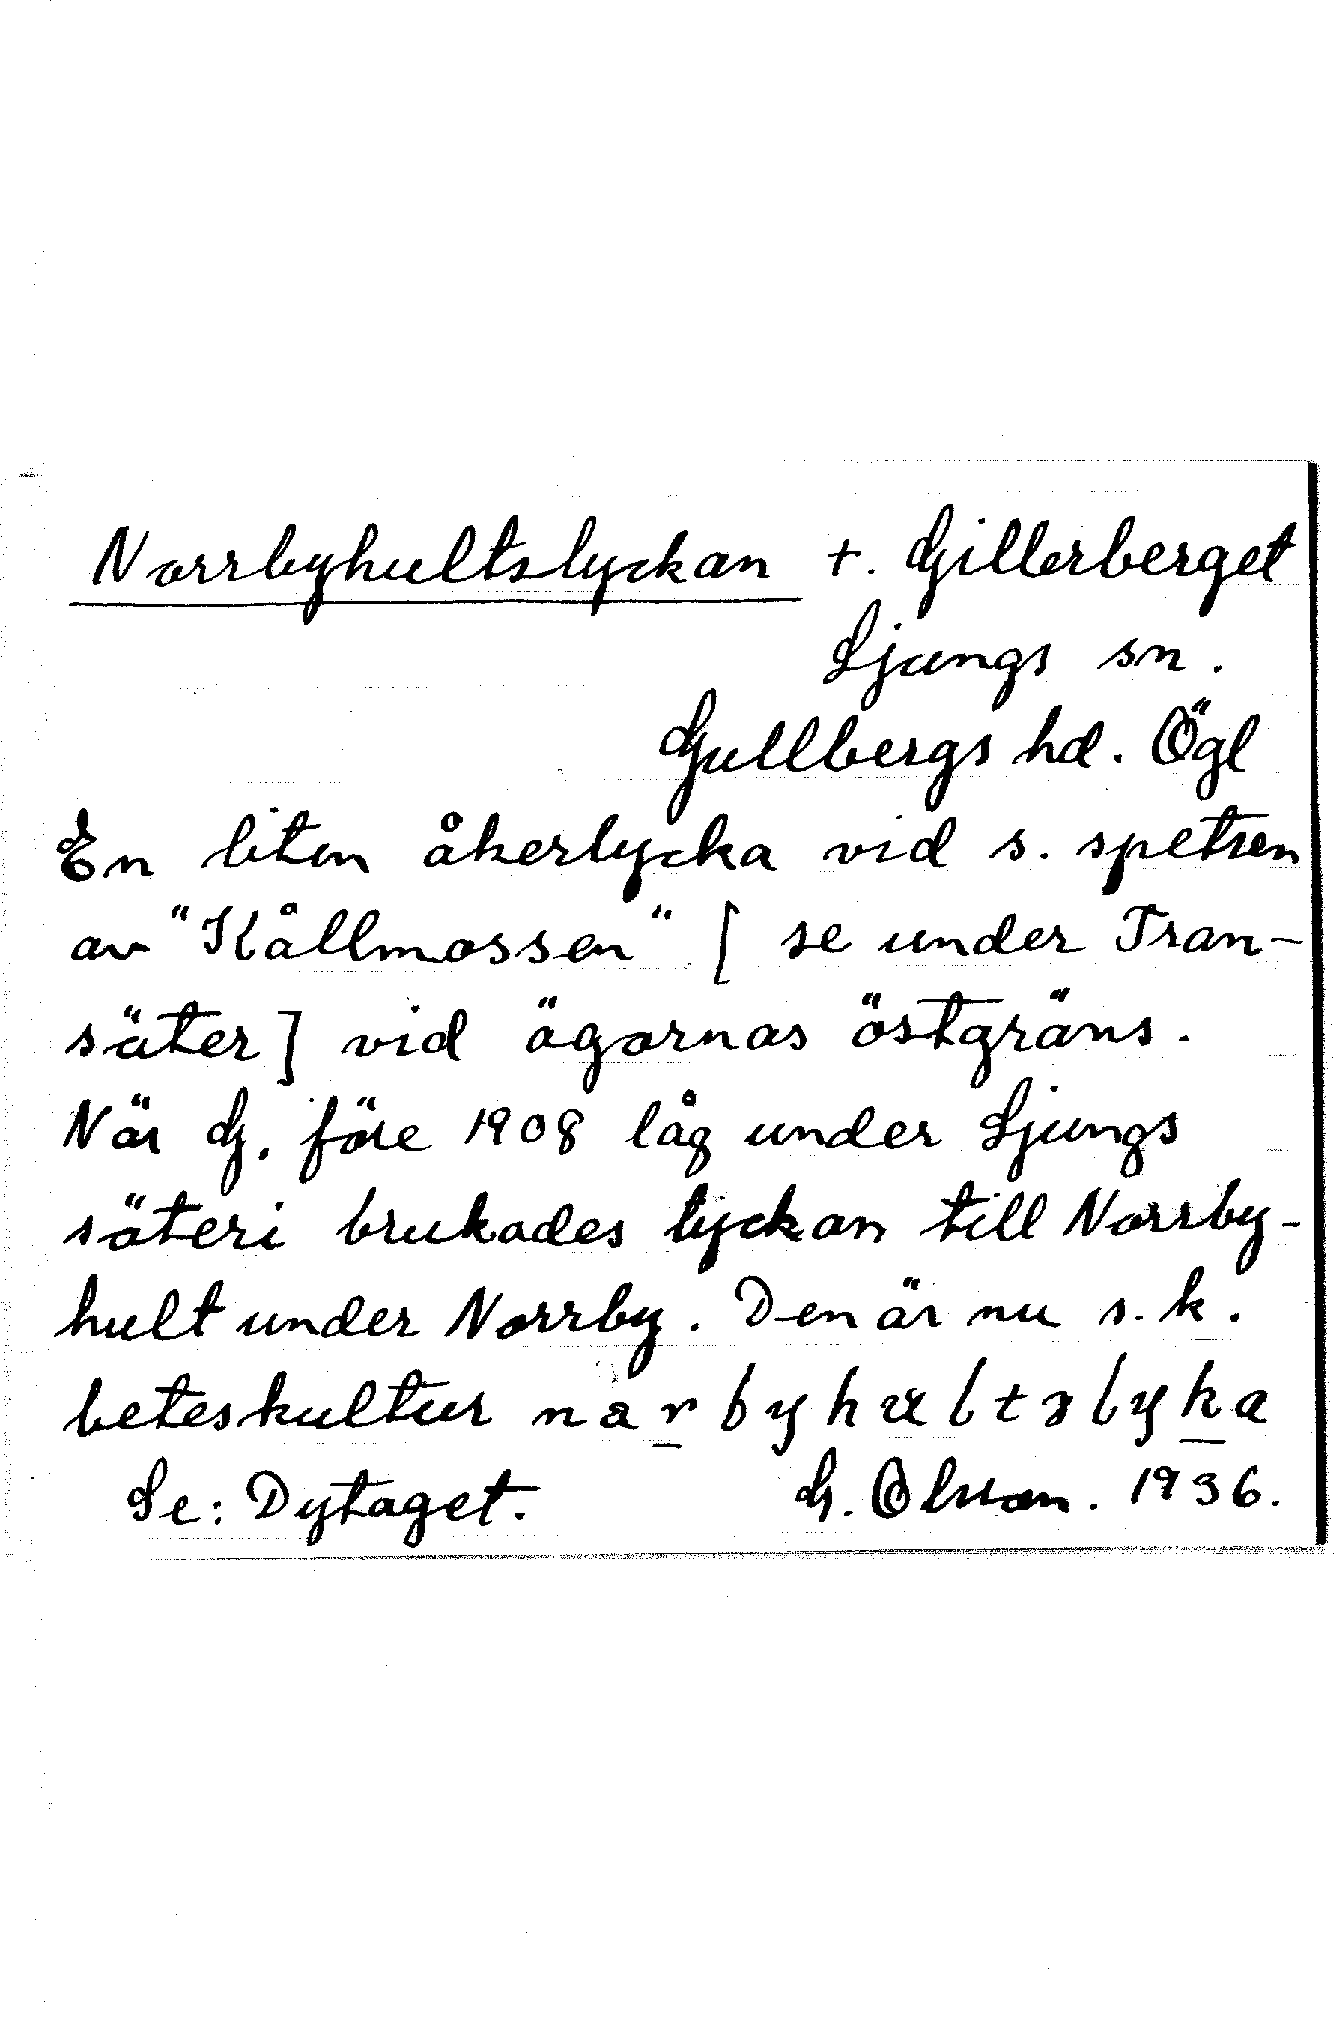 Norrbyhultslyckan t. Gillerberget
Ljungs sn.
Gullbergs hd. Ögl
En liten åkerlycka vid s. spetsen
av "Kållmossen" [se under Tran-
säter] vid ägornas östgräns.
När G. före 1908 låg under Ljungs
säteri brukades lyckan till Norrby-
hult under Norrby. Den är nu s.k.
beteskultur
Se: Dytaget. G. Olsson. 1936.